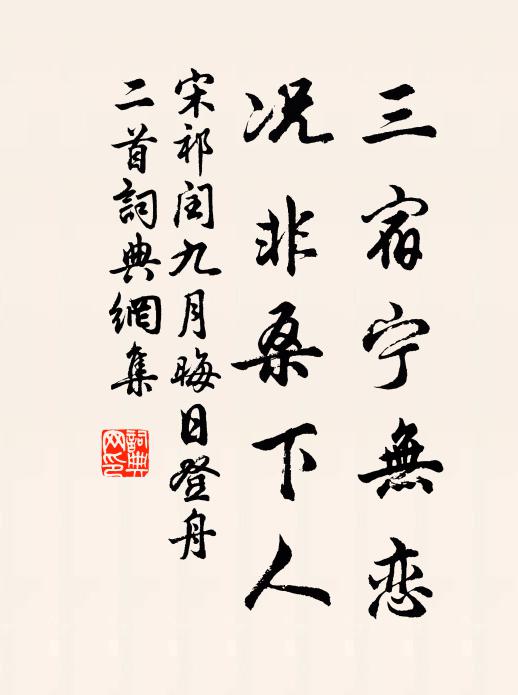 三宿宁無恋
况非桑下人
宋祁闰九月晦日登舟
二首詞典網集
詞典
网印